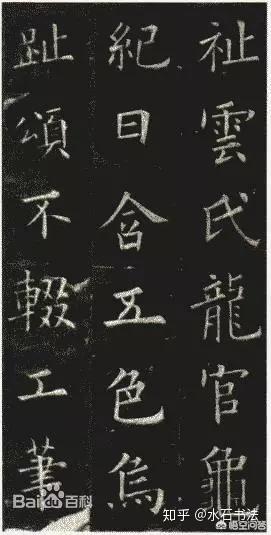 祉雲氏龍官龜
紀日含五色烏
趾頌不輟工筆
Bai百科
知乎 @水石书法
悟空问答